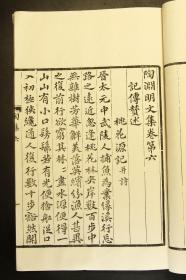 陶淵明文集卷第六
記傳贊述
桃花源記并詩
晉太元中武陵人捕魚為業緣溪行忘
路之遠近忽逢桃花林夾岸數百步中
無雜樹芳華鮮美落英繽紛漁人甚異
之復前行欲窮其林林盡水源便得一
山山有小口髣髴若有光便捨船從口
入初極狹纔通人復行數十步豁然開